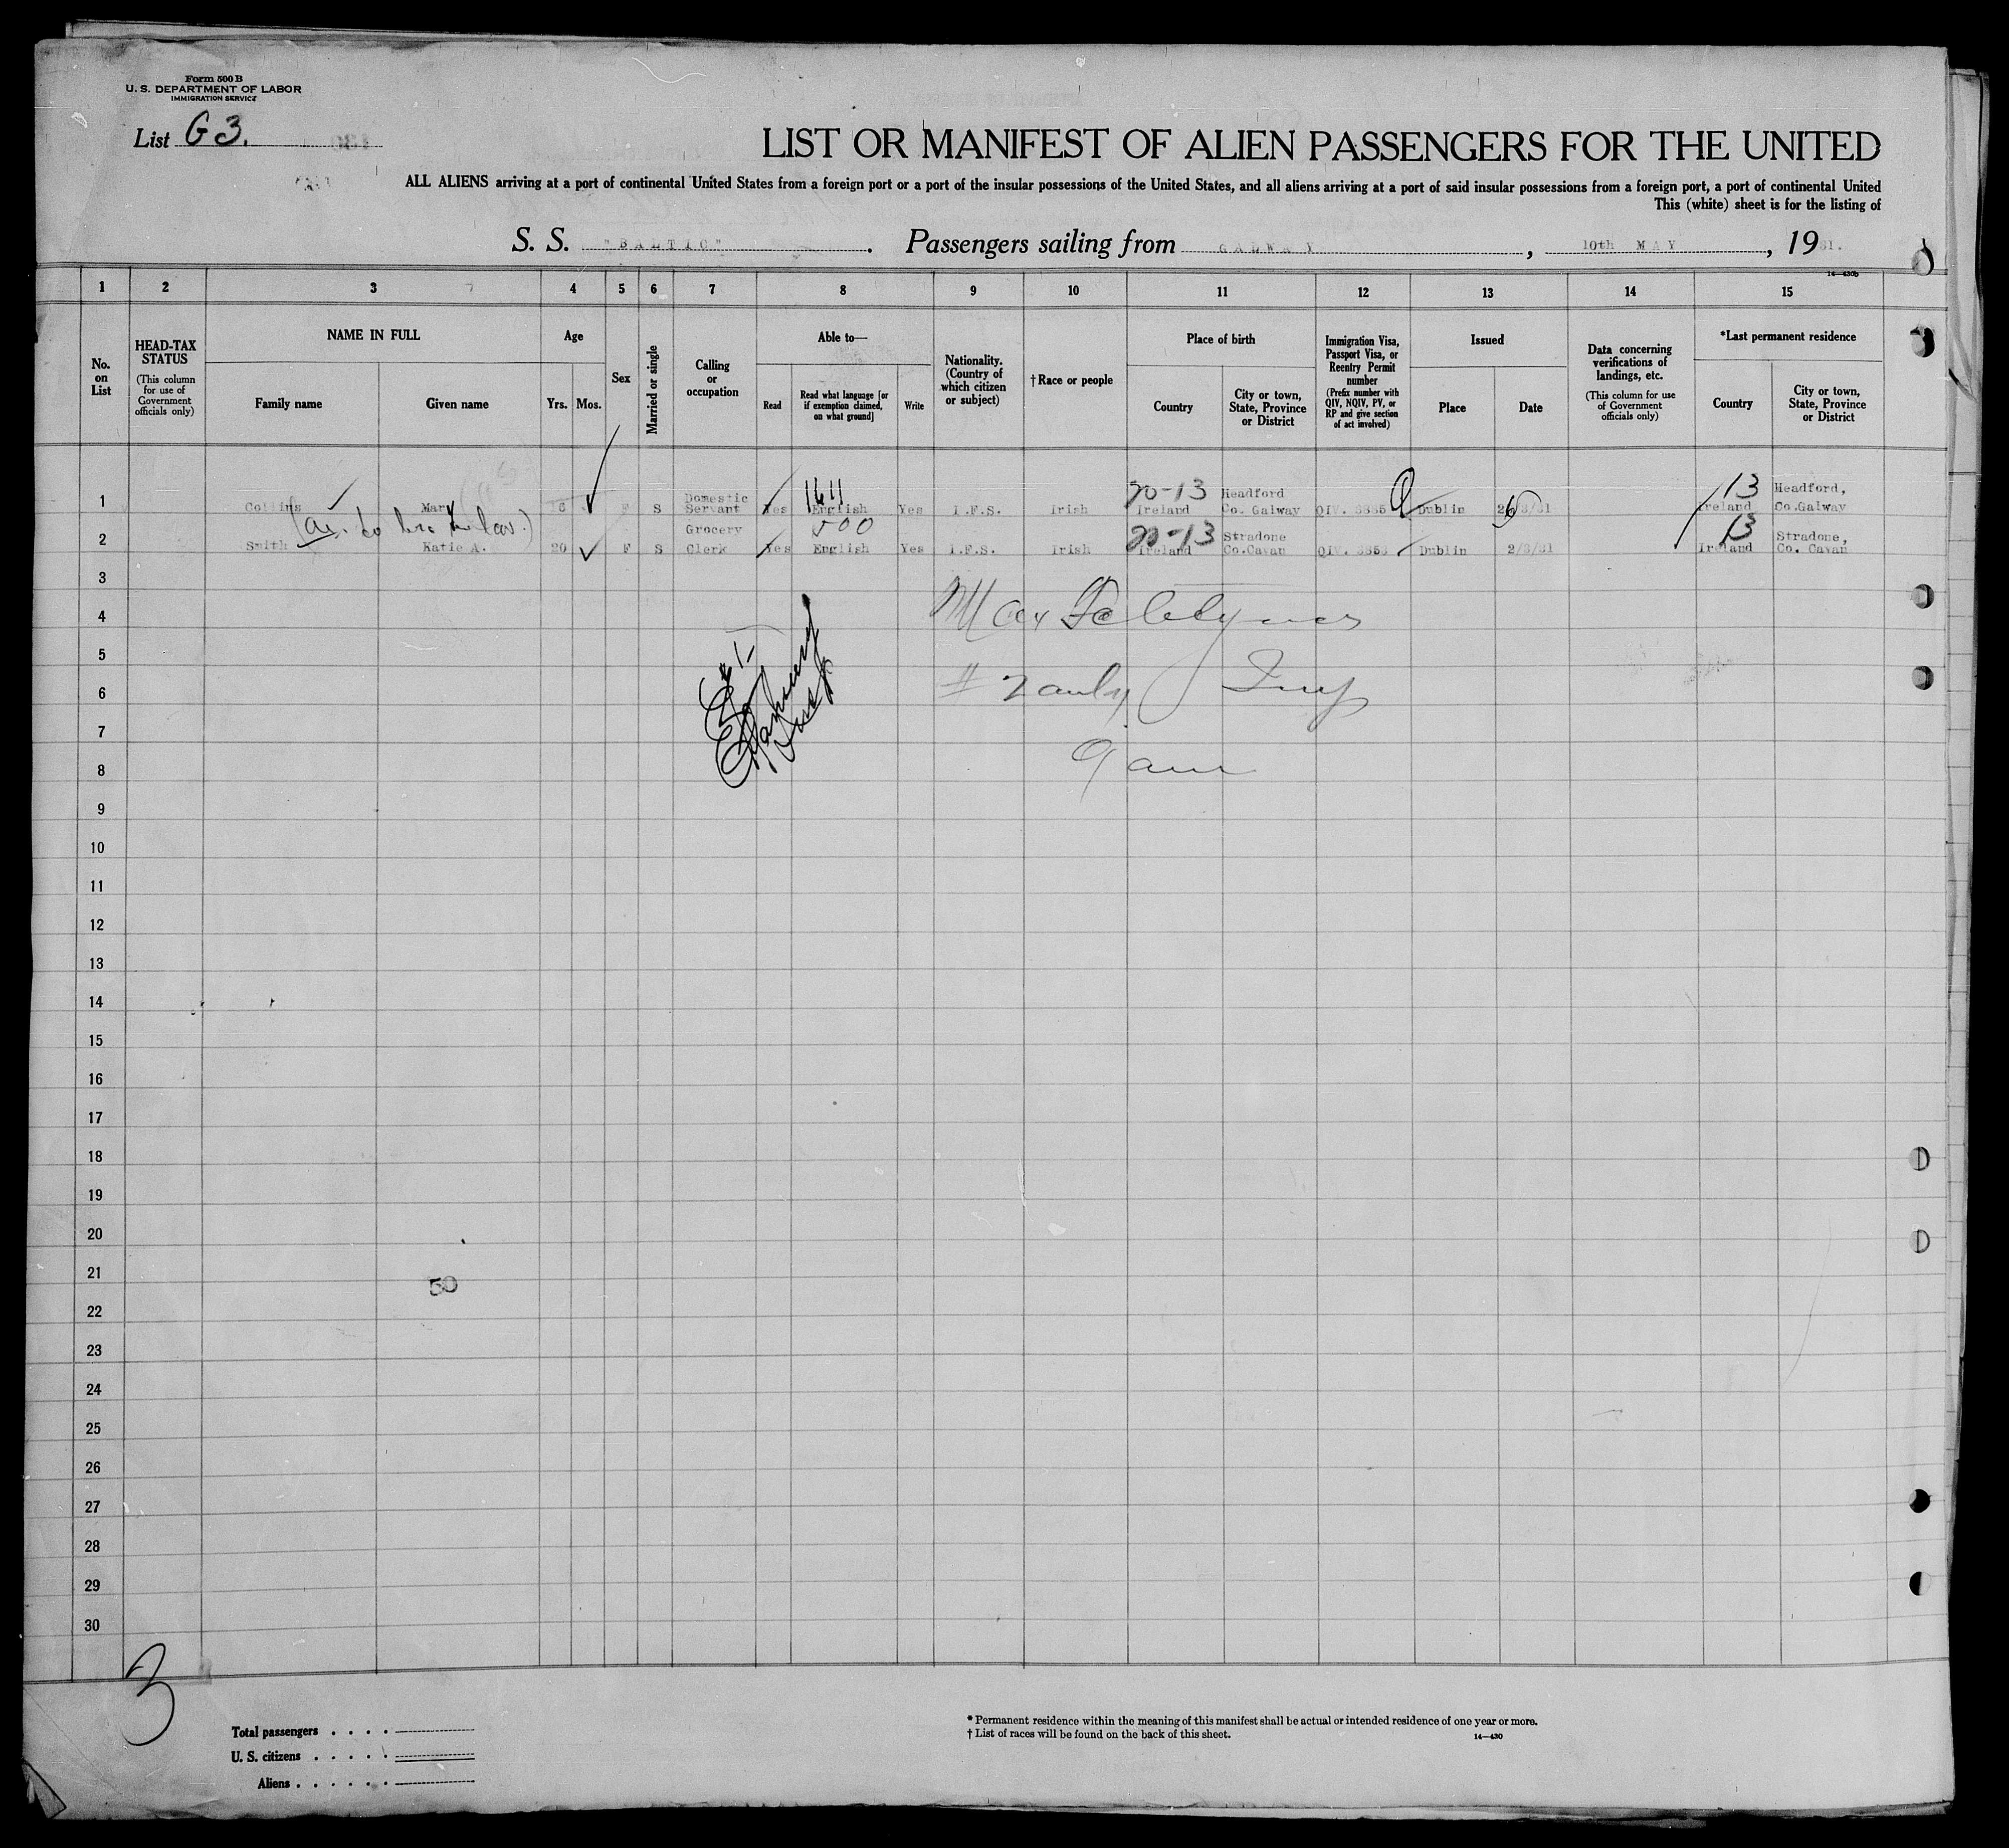 Form 500 B
U. S. DEPARTMENT OF LABOR
IMMIGRATION SERVICE
List G3.
LIST OR MANIFEST OF ALIEN PASSENGERS FOR THE UNITED
ALL ALIENS arriving at a port of continental United States from a foreign port or a port of the insular possessions of the United States, and all aliens arriving at a port of said insular possessions from a foreign port, a port of continental United
This (white) sheet is for the listing of
S. S. "BALTIC". Passengers sailing from GALWAY, 10th MAY, 1931.
14—430b
1 2 3 4 5 6 7 8 9 10 11 12 13 14 15
No. on List
HEAD-TAX STATUS (This column for use of Government officials only)
NAME IN FULL
Family name
Given name
Age
Yrs. Mos.
Sex
Married or single
Calling or occupation
Able to—
Read
Read what language [or if exemption claimed, on what ground]
Write
Nationality. (Country of which citizen or subject)
† Race or people
Place of birth
Country
City or town, State, Province or District
Immigration Visa, Passport Visa, or Reentry Permit number (Prefix number with QIV, NQIV, PV, or RP and give section of act involved)
Issued
Place
Date
Data concerning verifications of landings, etc. (This column for use of Government officials only)
*Last permanent residence
Country
City or town, State, Province or District
164 20-13 13
1 Collins Mary F S Domestic Servant Yes English Yes I.F.S. Irish Ireland Headford Co. Galway QIV. Dublin Ireland Headford, Co.Galway
500 20-13 13
2 Smith Katie A. 20 F S Grocery Clerk Yes English Yes I.F.S. Irish Ireland Stradone Co.Cavan QIV. Dublin 2/3/31 Ireland Stradone, Co. Cavan
3
4
5
6 # 2 only
7
8 9 am
9
10
11
12
13
14
15
16
17
18
19
20
21
50
22
23
24
25
26
27
28
29
30
3
Total passengers . . . .
U. S. citizens . . . . .
Aliens . . . . . .
* Permanent residence within the meaning of this manifest shall be actual or intended residence of one year or more.
† List of races will be found on the back of this sheet.
14—430